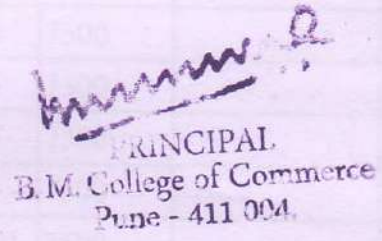 PRINCIPAL
B. M. College of Commerce
Pune - 411 004.